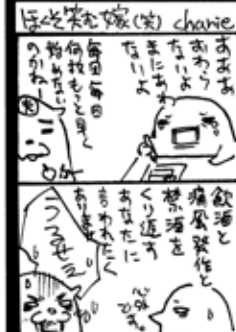 ほくそ笑む嫁(笑) charie
あああ
おわら
ないよ
まにあわ
ないよ
毎回毎回
何故もっと早く
始めない
のかねー
笑
飲酒と
痛風発作と
禁酒を
くり返す
あなたに
言われたく
ありません
うるせェ